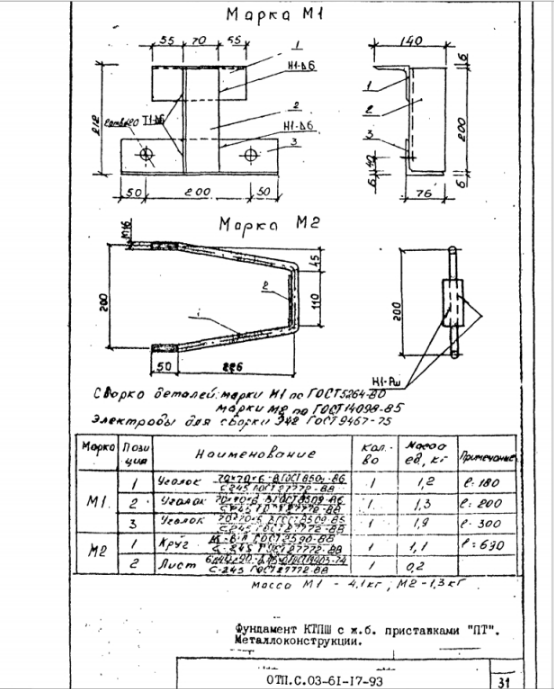 Марка М1
55 70 55
140
1
Н1-Δ6
6
1
2
2
212
Т1-Δ6
Н1-Δ6
200
3
3
40
6
6
50 200 50
76
Марка М2
М16
45
200
2
110
200
1
50 226
Н1-Рш
Сварка деталей: марки М1 по ГОСТ5264-80
марки М2 по ГОСТ14098-85
Электроды для сварки Э42 ГОСТ9467-75
Марка Позиция Наименование Кол-во Масса ед, кг Примечание
М1 1 Уголок 70×70×6-В ГОСТ8509-86 С-245 ГОСТ27772-88 1 1,2 ℓ=180
2 Уголок 70×70×6-В ГОСТ8509-86 С-245 ГОСТ27772-88 1 1,3 ℓ=200
3 Уголок 70×70×6-В ГОСТ8509-86 С-245 ГОСТ27772-88 1 1,9 ℓ=300
М2 1 Круг ГОСТ2590-88 С-245 ГОСТ27772-88 1 1,1 ℓ=690
2 Лист С-245 ГОСТ27772-88 1 0,2
масса М1 - 4,1кг, М2-1,3кг
Фундамент КТПШ с ж.б. приставками "ПТ".
Металлоконструкции.
ОТП.С.03-61-17-93 31